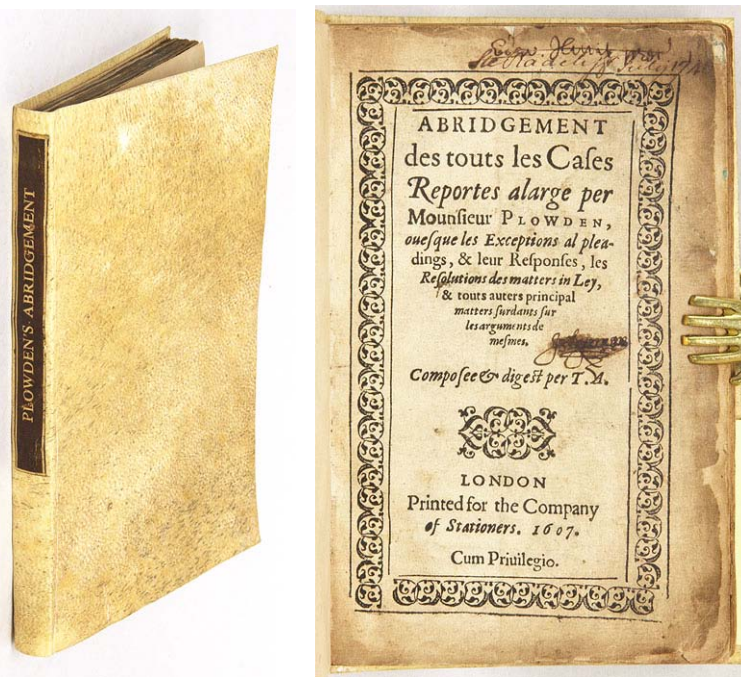 PLOWDEN'S ABRIDGEMENT
ABRIDGEMENT
des touts les Caſes
Reportes alarge per
Mounſieur PLOWDEN,
oueſque les Exceptions al plea-
dings, & leur Reſponſes, les
Reſolutions des matters in Ley,
& touts auters principal
matters ſurdants ſur
les arguments de
meſmes.
Compoſee & digeſt per T.A.
LONDON
Printed for the Company
of Stationers. 1607.
Cum Priuilegio.